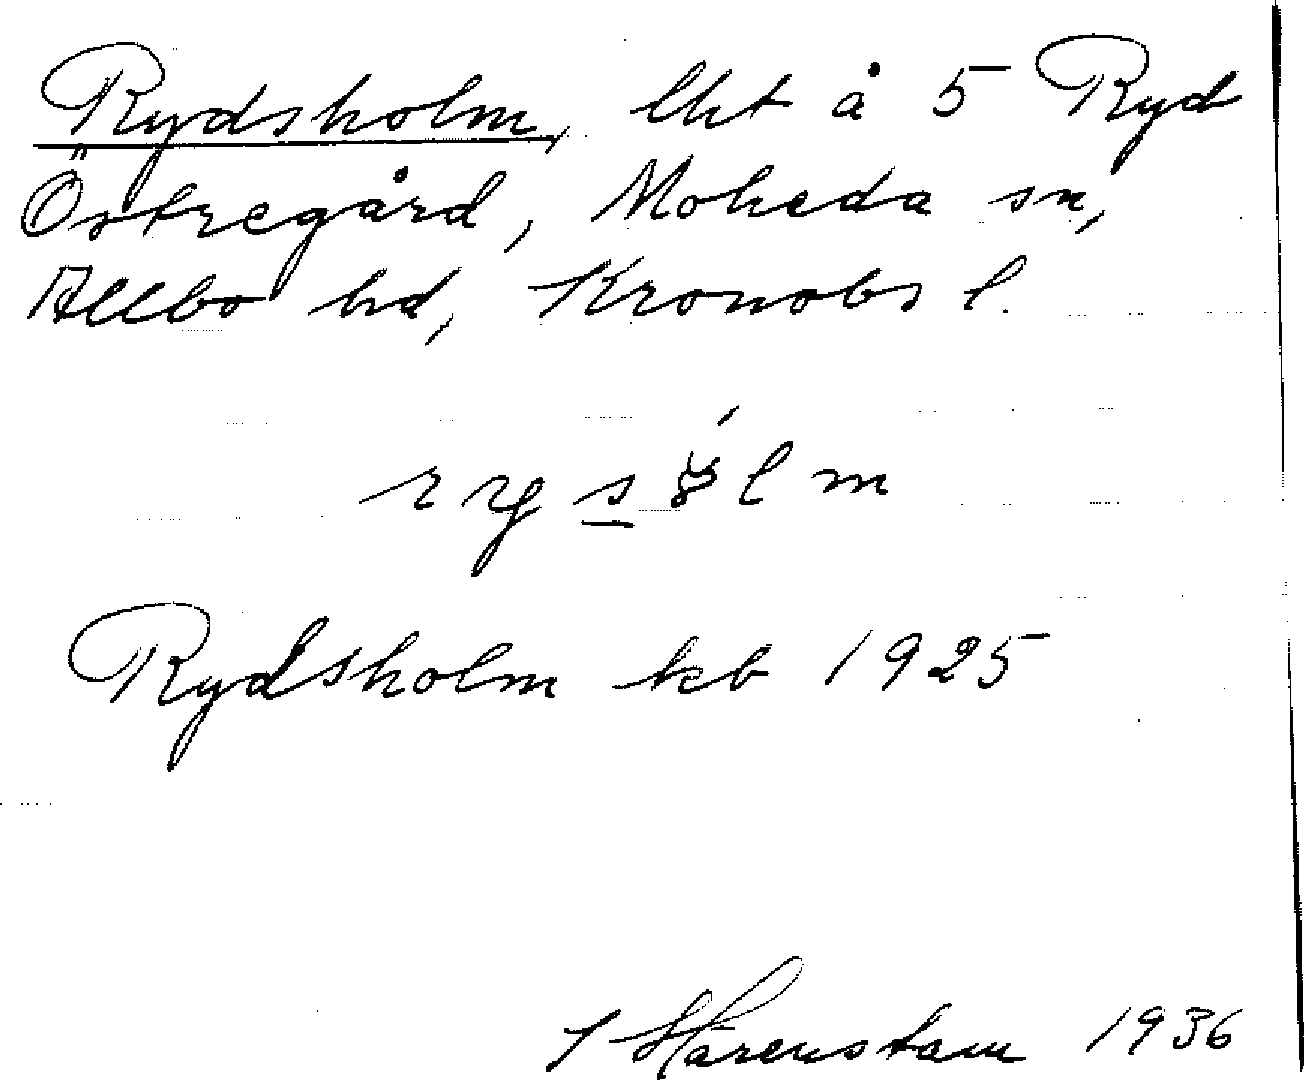 Rydsholm, lht å 5 Ryd
Östregård, Moheda sn,
Allbo hd, Kronobs l.
Rydsholm kb 1925
Härenstam 1936